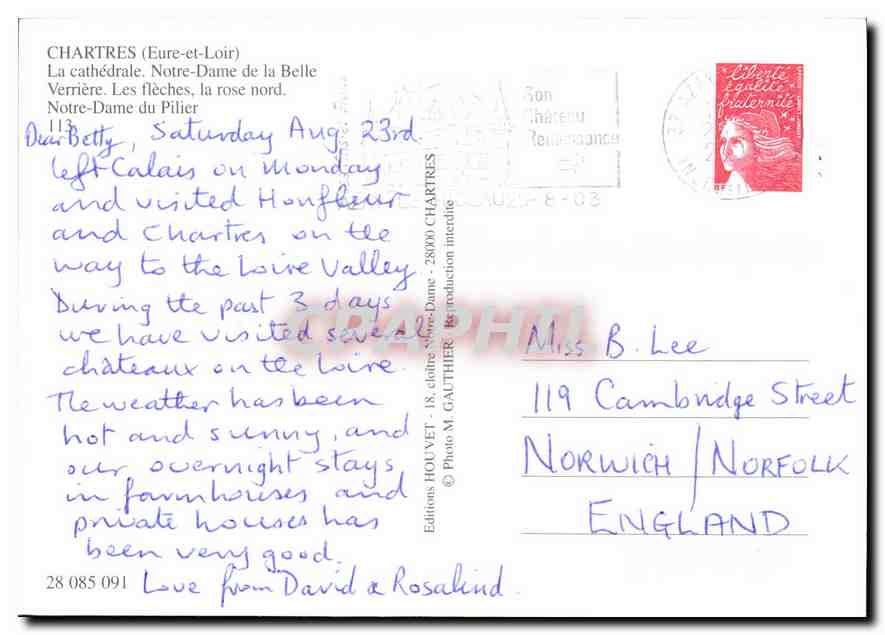 CHARTRES (Eure-et-Loir)
La cathédrale. Notre-Dame de la Belle
Verrière. Les flèches, la rose nord.
Notre-Dame du Pilier
113
Dear Betty, Saturday Aug 23rd.
left Calais on Monday
and visited Honfleur
and Chartres on the
way to the Loire Valley.
During the past 3 days
we have visited several
châteaux on the Loire.
The weather has been
hot and sunny, and
our overnight stays
in farmhouses and
private houses has
been very good.
Love from David & Rosalind.
28 085 091
Editions HOUVET - 18, cloître Notre-Dame - 28000 CHARTRES
© Photo M. GAUTHIER - Reproduction interdite
Son
Château
Renaissance
8-03
liberté
égalité
fraternité
Miss B. Lee
119 Cambridge Street
NORWICH / NORFOLK
ENGLAND